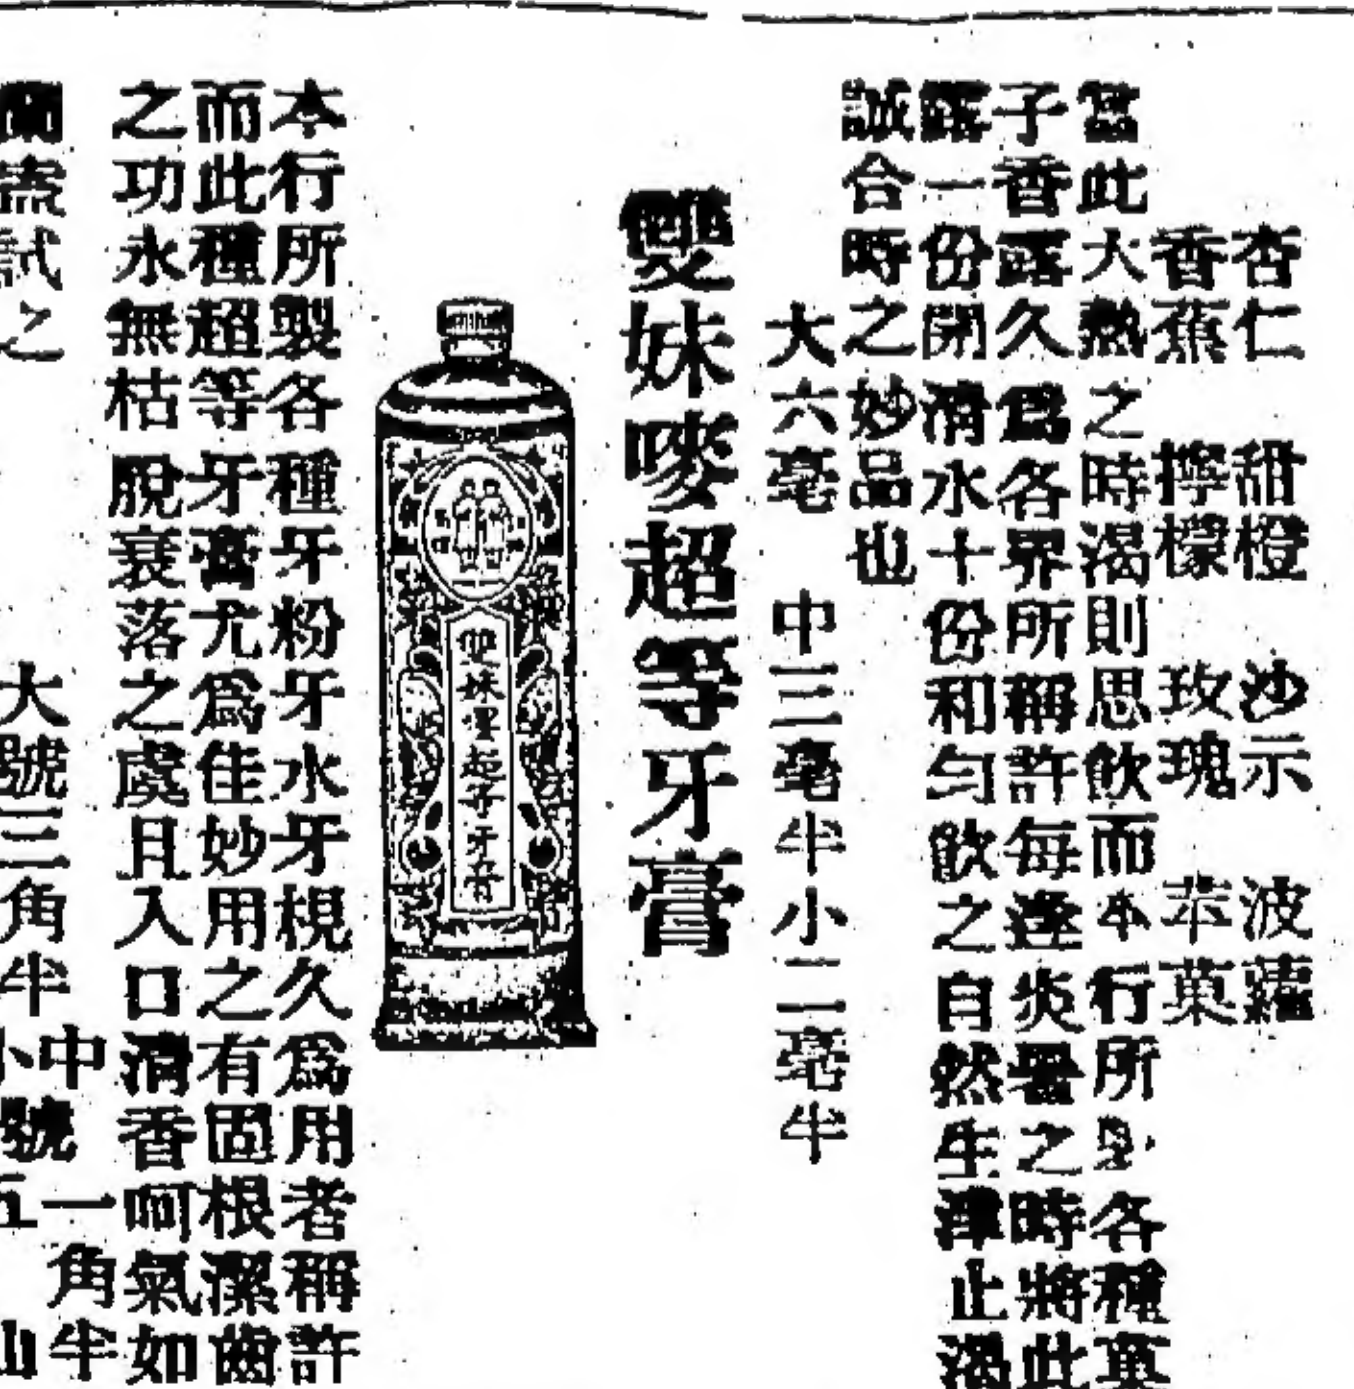 杏仁 甜橙 沙示 波蘿
香蕉 擰檬 玫瑰 苹菓
當此大熱之時渴則思飲而本行所 各種菓
子香露久爲各界所稱許每逢炎暑之時將此
露一份開淸水十份和勻飲之自然生津止渴
誠合時之妙品也
大六毫 中三毫半小二毫半
雙妹嘜超等牙膏
雙妹嘜超等牙膏
本行所製各種牙粉牙水牙梘久爲用者稱許
而此種超等牙膏尤爲佳妙用之有固根潔齒
之功永無枯脫衰落之虞且入口淸香呵氣如
蘭盍試之
大號三角半
中 一角半
小號五 仙